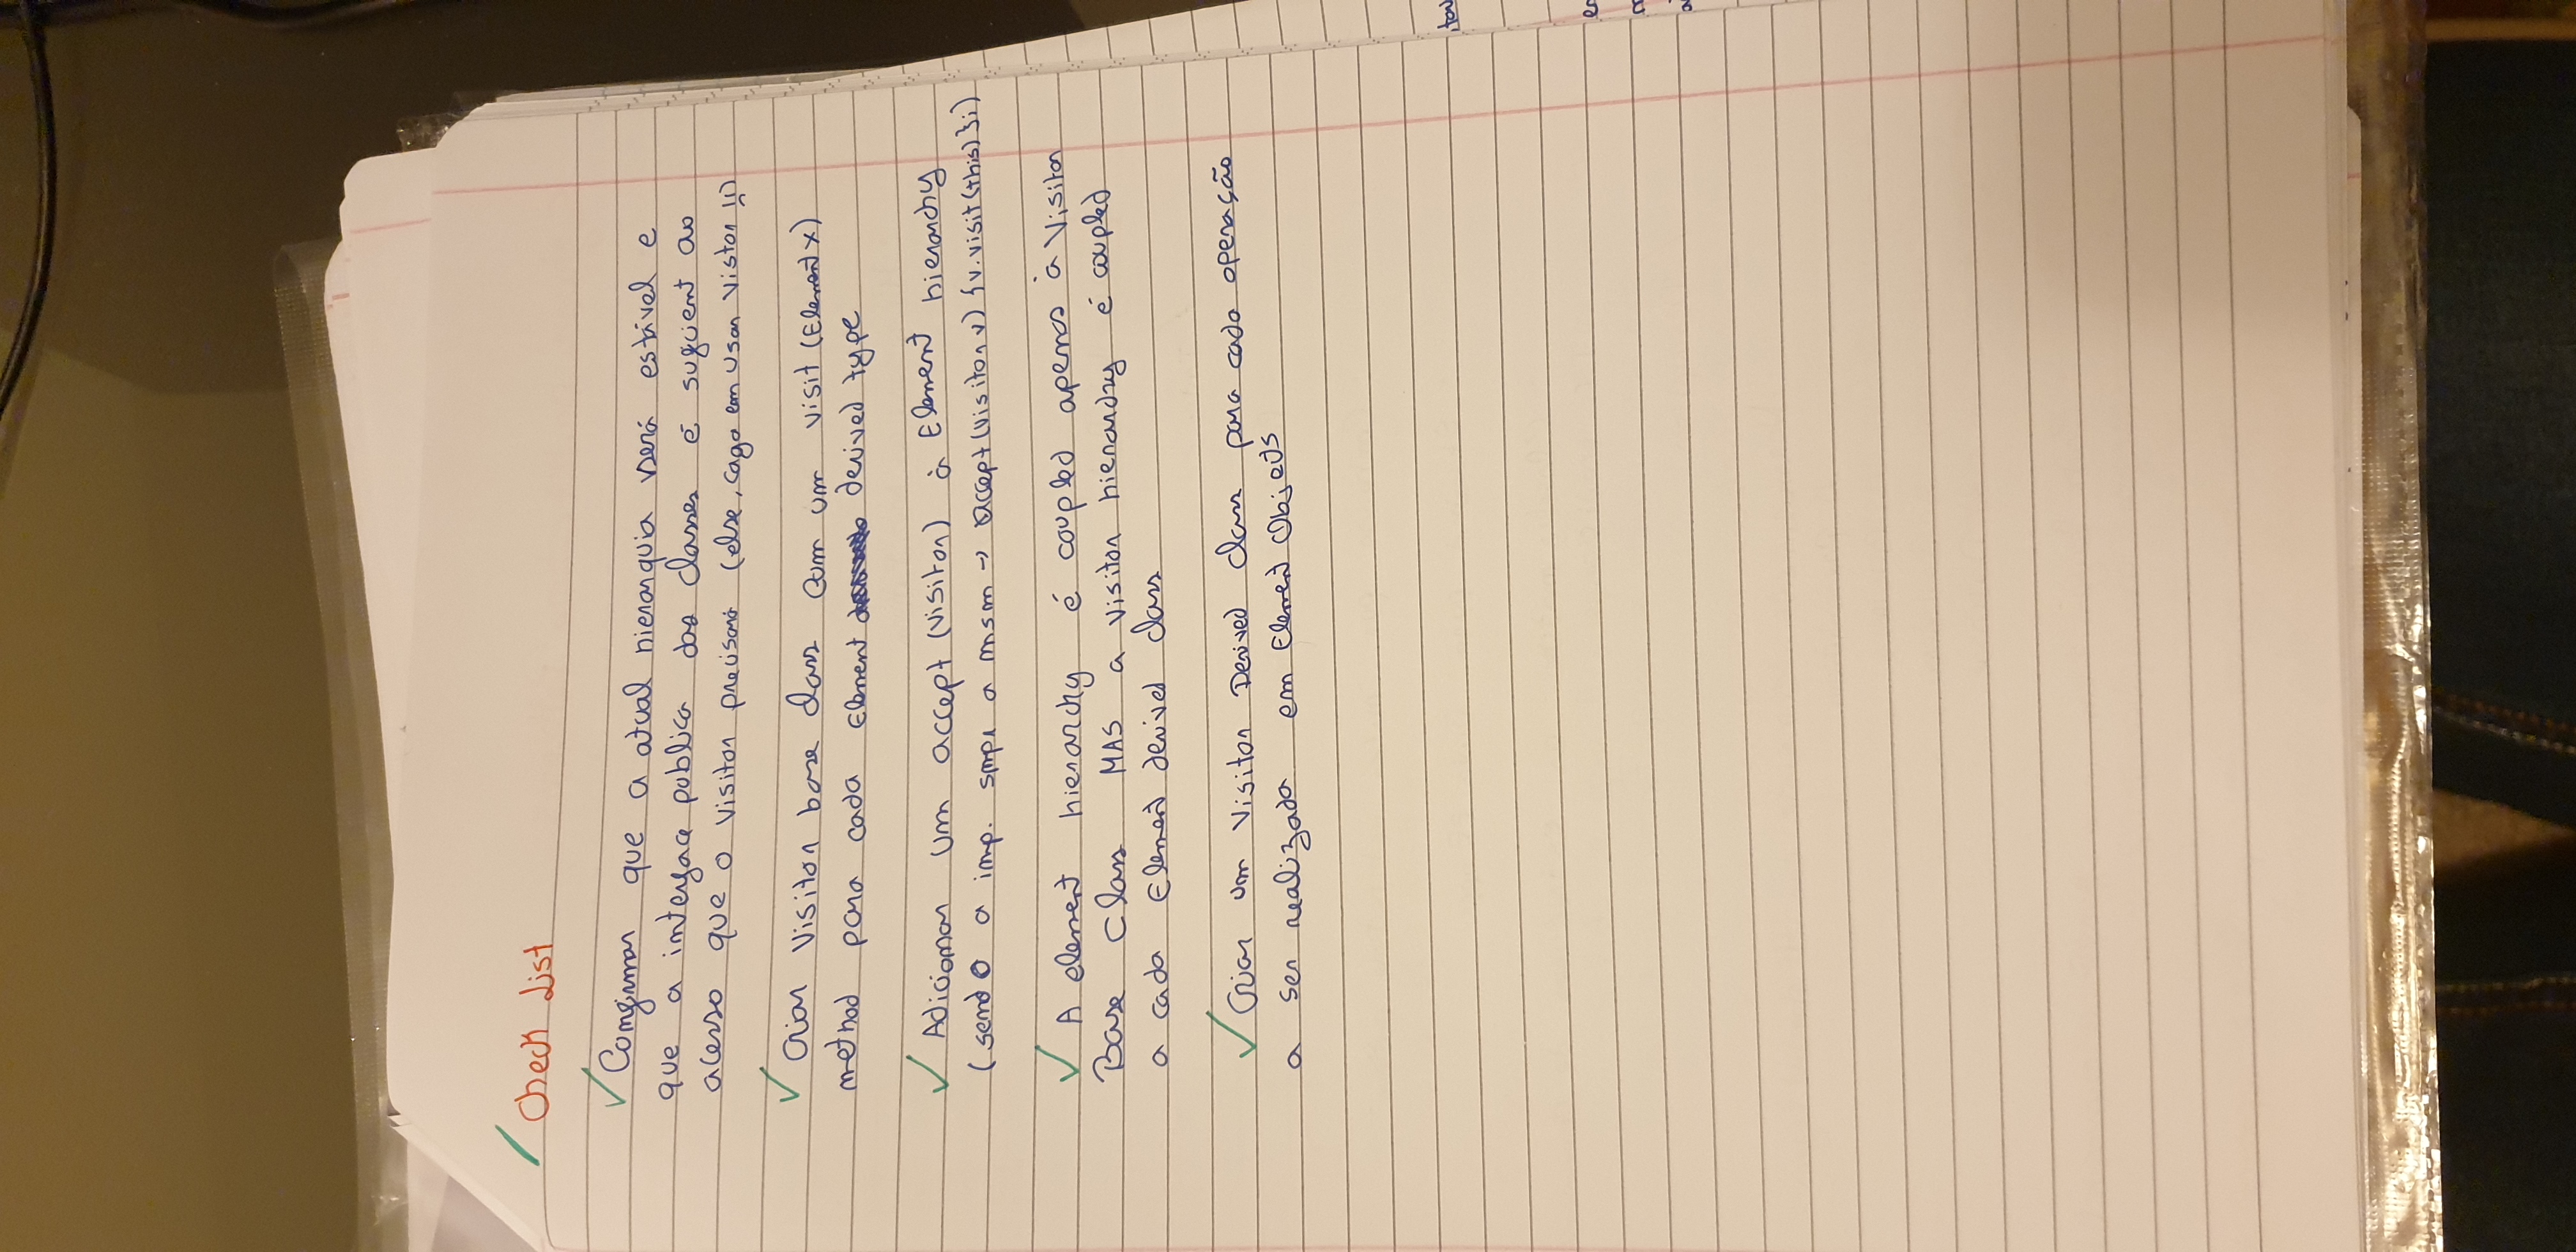 Check List
Confirmar que a atual hierarquia será estável e
que a interface publica das classes é suficient ao
acesso que o Visitor precisará (else, caga em usar Vistor !!)
Criar Visitor base class com um visit (Element x)
method para cada Element derived type
Adicionar um accept (Visitor) à Element hierarchy
(sendo a imp. smpr a msm → accept(Visitor v) {v.visit(this)};)
A element hierarchy é coupled apenas à Visitor
Base Class MAS a visitor hierarchy é coupled
a cada Element derived class
Criar um Visitor Derived class para cada operação
a ser realizada em Element Objects